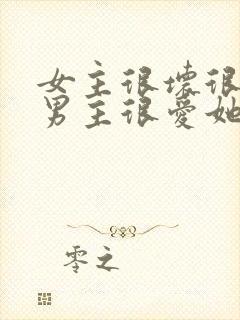 女主很坏很
男主很爱她
零之